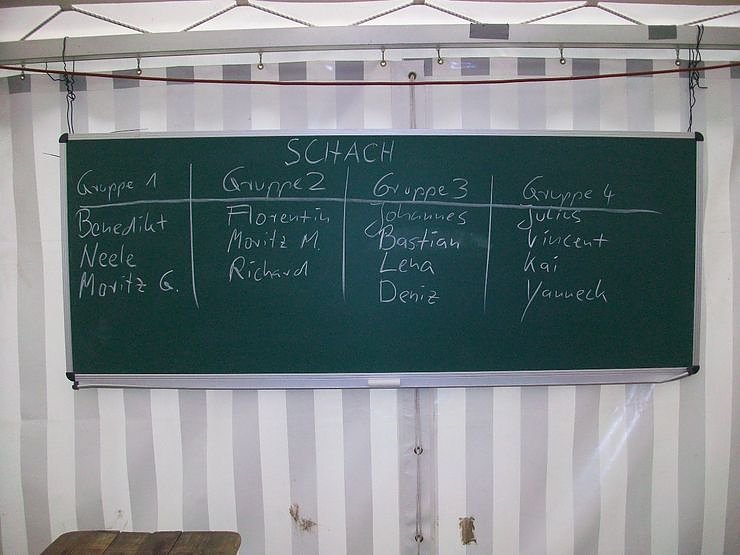 SCHACH
Gruppe 1
Benedikt
Neele
Moritz G.
Gruppe 2
Florentin
Moritz M.
Richard
Gruppe 3
Johannes
Bastian
Lena
Deniz
Gruppe 4
Julius
Vincent
Kai
Yanneck